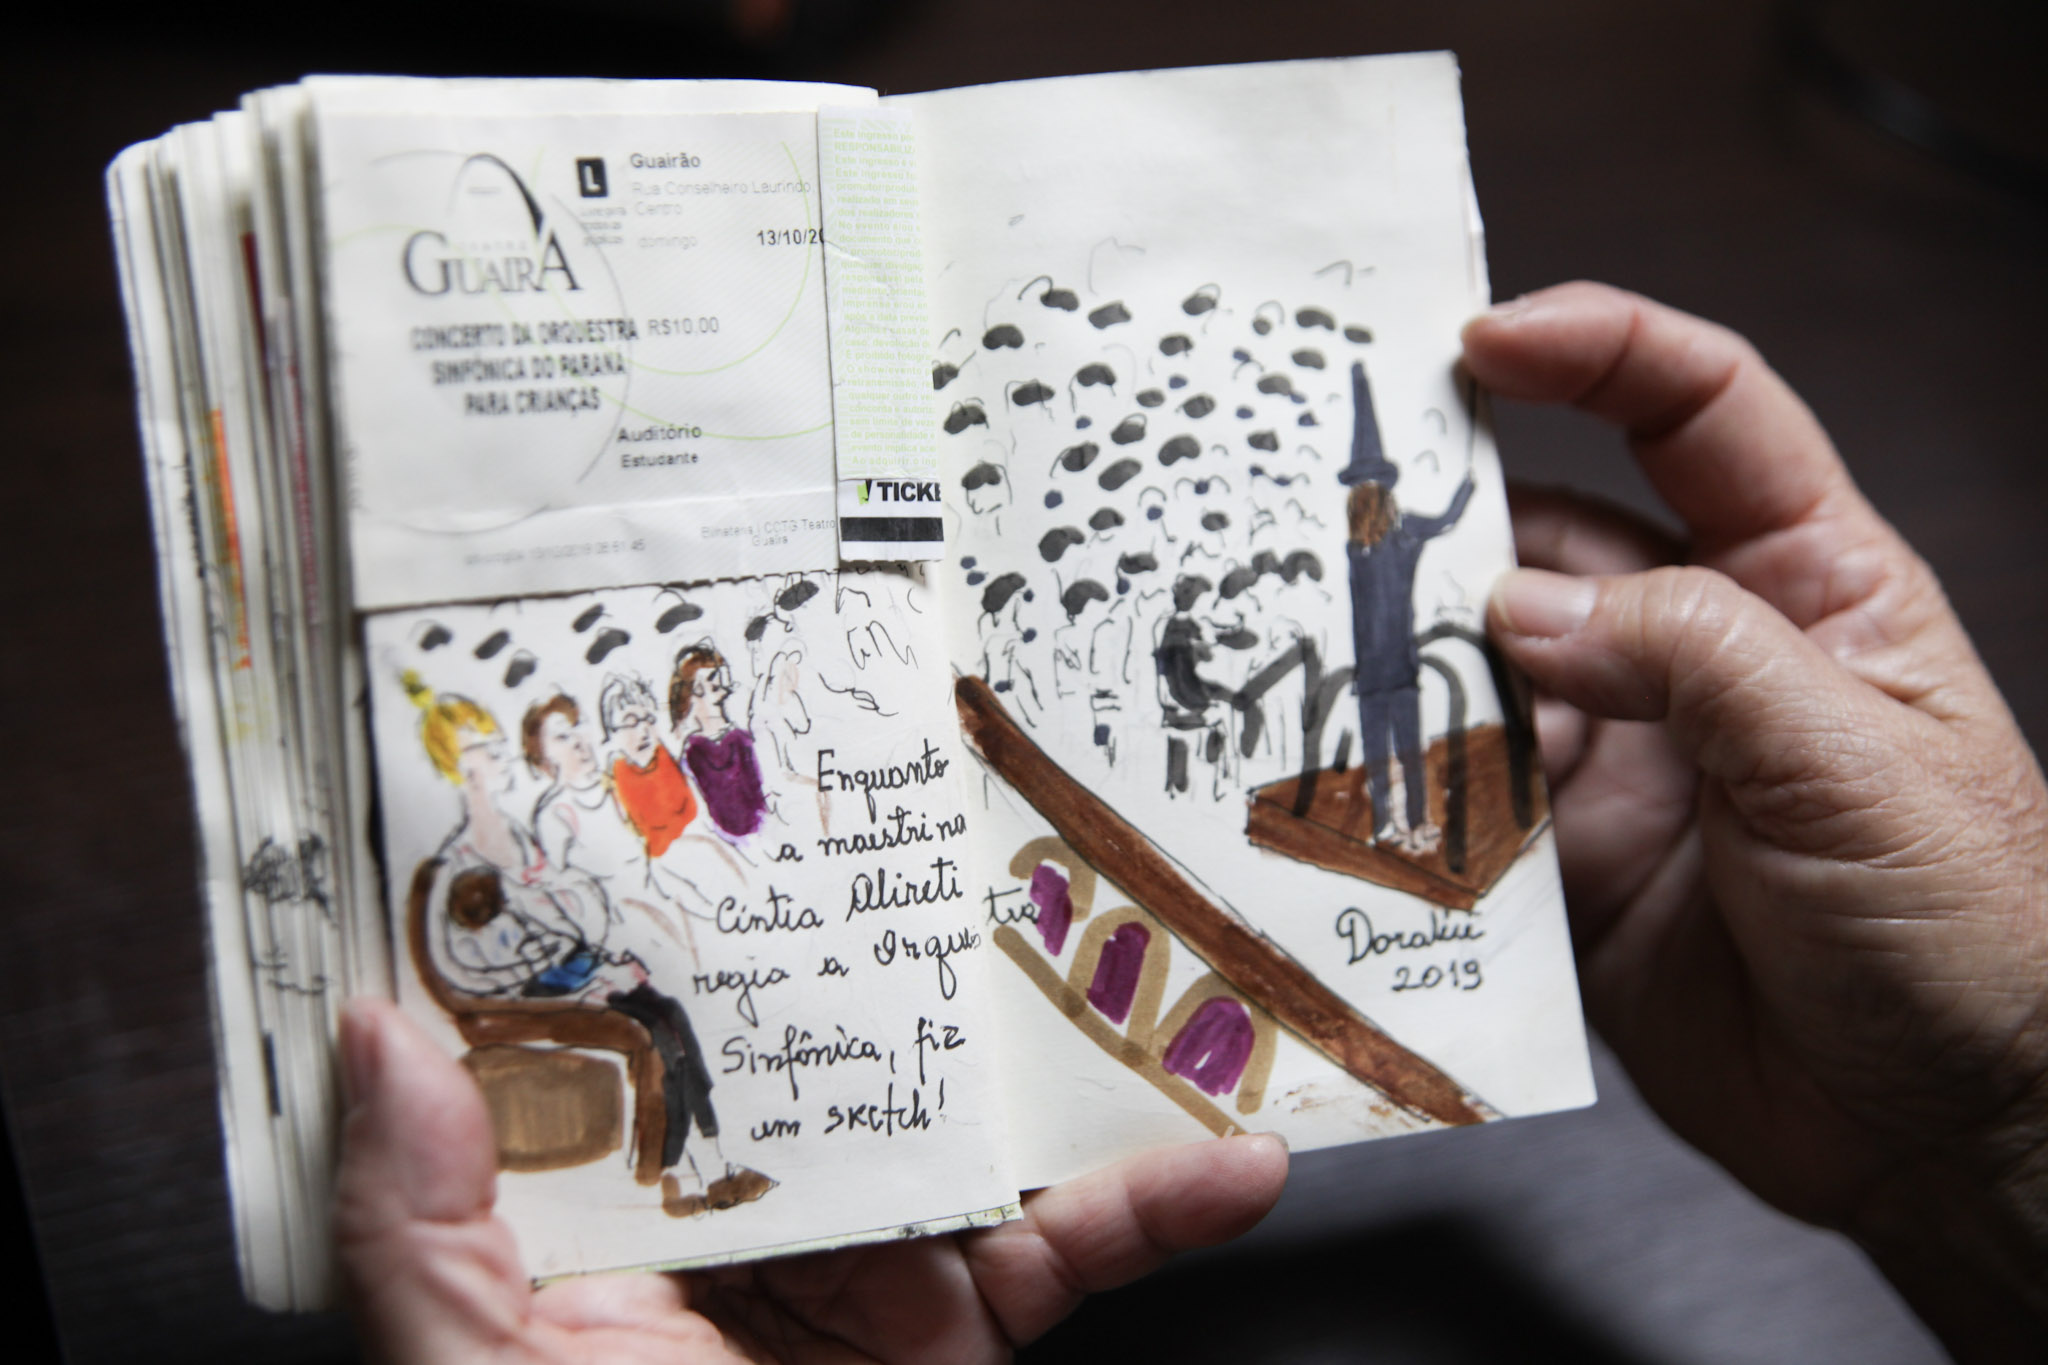 GUAIRA
L
Guairão
Rua Conselheiro Laurindo,
Centro
domingo
13/10/20
CONCERTO DA ORQUESTRA
SINFÔNICA DO PARANA
PARA CRIANÇAS
R$10,00
Auditório
Estudante
Bilheteria | CCTG Teatro
Guaíra
Este ingresso
RESPONSABILIZ
Este ingresso é
Este ingresso
promotor/produt
realizado em
dos realizadores
No evento e/ou
documento que
O promotor/prod
qualquer divulgaç
responsável pela
mediante
Imprensa e/ou
após a data
caso, devolução
É proibido fotogr
O show/evento
retransmissão,
qualquer outro
concorda e autoriz
sem limite de veze
de personalidade
evento implica
Ao adquirir o ing
TICKE
Enquanto
a maestrina
Cíntia Alireti
regia a Orques
tra
Sinfônica, fiz
um sketch!
2019